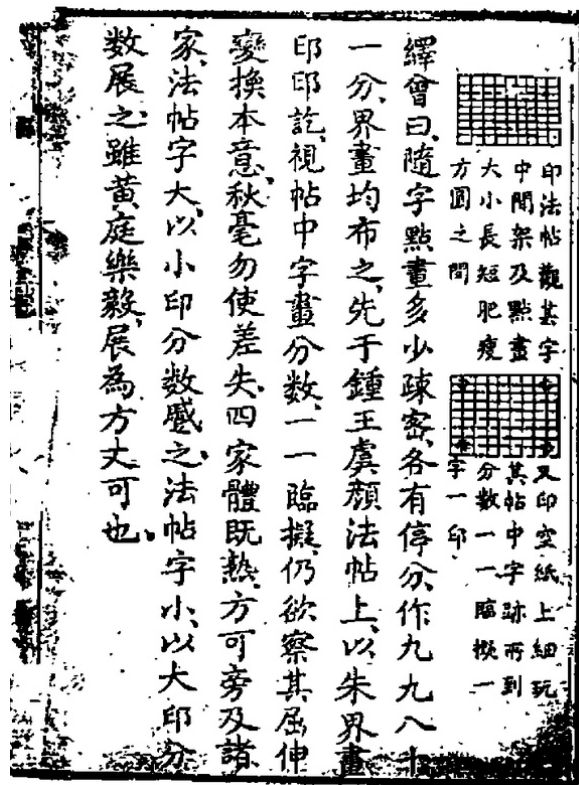 印法帖觀其字
中間架及點畫
大小長短肥瘦
方圓之間
又印空紙上細玩
其帖中字跡所到
分數一一臨擬一
字一印
繹曾曰隨字點畫多少疎密各有停分作九九八十
一分界畫均布之先于鍾王虞顏法帖上以朱界畫
印印訖視帖中字畫分數一一臨擬仍欲察其屈伸
變換本意秋毫勿使差失四家體既熱方可旁及諸
家法帖字大以小印分數蹙之法帖字小以大印分
数展之雖黃庭樂毅展為方丈可也